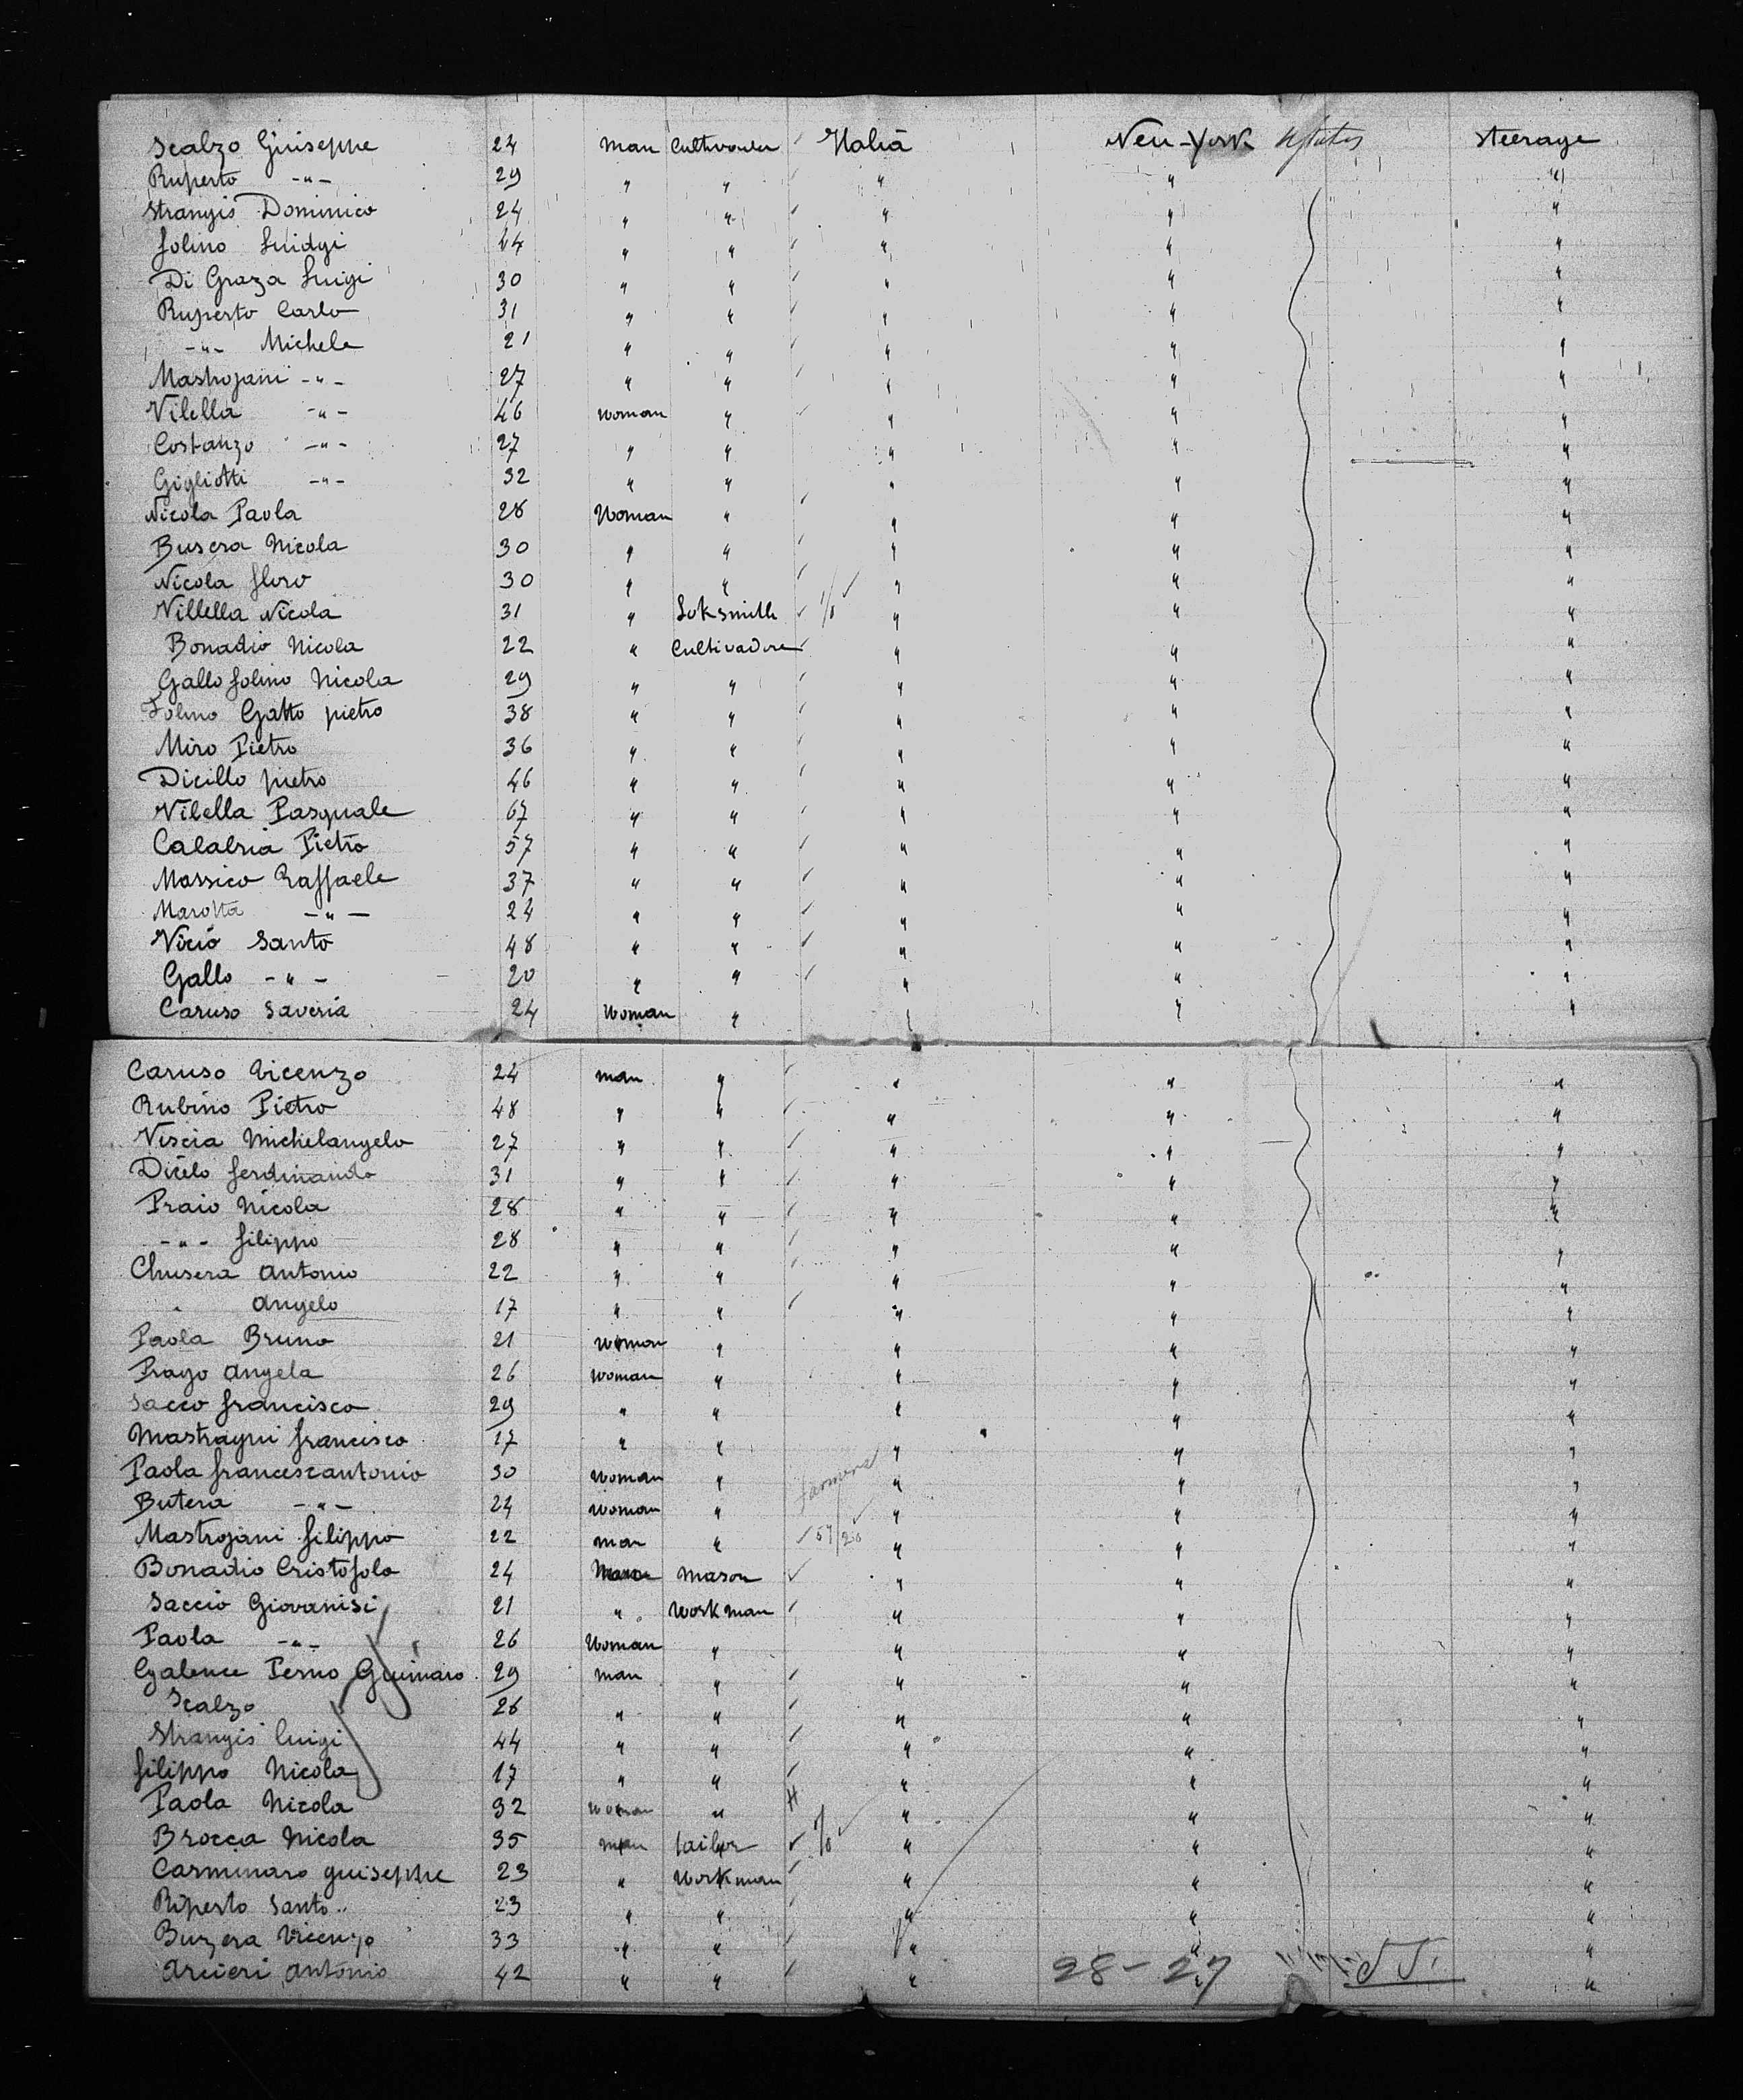 Scalzo Giuseppe 24 man Cultivador Italia New-York Ustates Steerage
Ruperto -"- 29 " " " " "
Strangis Dominico 24 " " " " "
folino Luidgi 44 " " " " "
Di Graza Luigi 30 " " " " "
Ruperto Carlo 31 " " " " "
-"- Michele 21 " " " " "
Mastrojani -"- 27 " " " " "
Vilella -"- 46 woman " " " "
Costanzo -"- 27 " " " " "
Gigliotti -"- 32 " " " " "
Nicola Paola 28 Woman " " " "
Busera Nicola 30 " " " " "
Nicola floro 30 " " " " "
Villella Nicola 31 " Loksmith " " "
Bonadio Nicola 22 " Cultivadore " " "
Gallo folino Nicola 29 " " " " "
Folino Gatto pietro 38 " " " " "
Miro Pietro 36 " " " " "
Dicillo pietro 46 " " " " "
Vilella Pasquale 67 " " " " "
Calabria Pietro 57 " " " " "
Massico Raffaele 37 " " " " "
Marotta -"- 24 " " " " "
Vicio Santo 48 " " " " "
Gallo -"- 20 " " " " "
Caruso Saveria 24 Woman " " " "
Caruso Vicenzo 24 man " " " "
Rubino Pietro 48 " " " " "
Viscia Michelangelo 27 " " " " "
Dicelo ferdinando 31 " " " " "
Praio Nicola 28 " " " " "
-"- filippo 28 " " " " "
Chusera Antonio 22 " " " " "
" Angelo 17 " " " " "
Paola Bruno 21 Woman " " " "
Prago Angela 26 Woman " " " "
Sacco francisco 29 " " " " "
Mastragni francisco 17 " " " " "
Paola francescantonio 30 Woman " " " "
Butera -"- 24 Woman " " " "
Mastrojani filippo 22 man " " " "
Bonadio Cristofolo 24 Mason " " "
Saccio Giovanisi 21 " Workman " " "
Paola -"- 26 Woman " " " "
Cyalence Perno Guinaro 29 man " " " "
Scalzo 26 " " " " "
Strangis Luigi 44 " " " " "
filippo Nicola 17 " " " " "
Paola Nicola 32 woman " " " "
Brocca Nicola 35 man tailor " " "
Carminaro guiseppe 23 " Workman " " "
Riperto Santo 23 " " " " "
Buzera Vicenzo 33 " " " " "
Arcieri Antonio 42 " " " " "
28-27